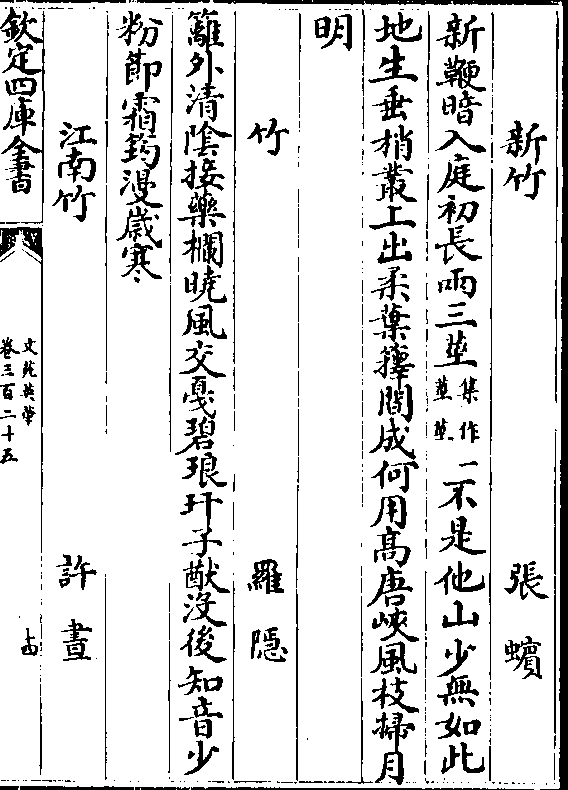 新竹 張蠙
新鞭暗入庭初長兩三莖集作莖莖一不是他山少無如此
地生垂梢叢上出柔葉籜間成何用高唐峽風枝掃月
明
竹 羅隱
籬外清陰接藥欄曉風交戛碧琅玕子猷沒後知音少
粉節霜筠漫歲寒
江南竹 許晝
欽定四庫全書
文苑英華
卷三百二十五
十四